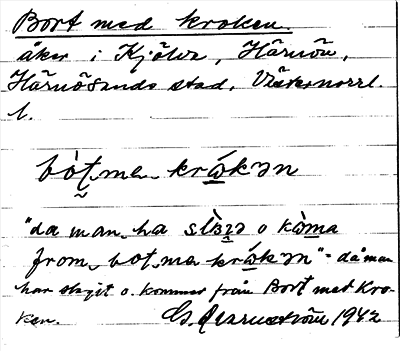 Bort med kroken.
åker i Kjölva, Härnön,
Härnösands stad, Västernorrl.
l.
bòt̰ ma krώ̲kən
"da man ha slɜ̀ʒə o kὼ̲ma
from bot ma krώ̲kən" - då man
har slagit o. kommer från Bort med Kro-
ken. 1942